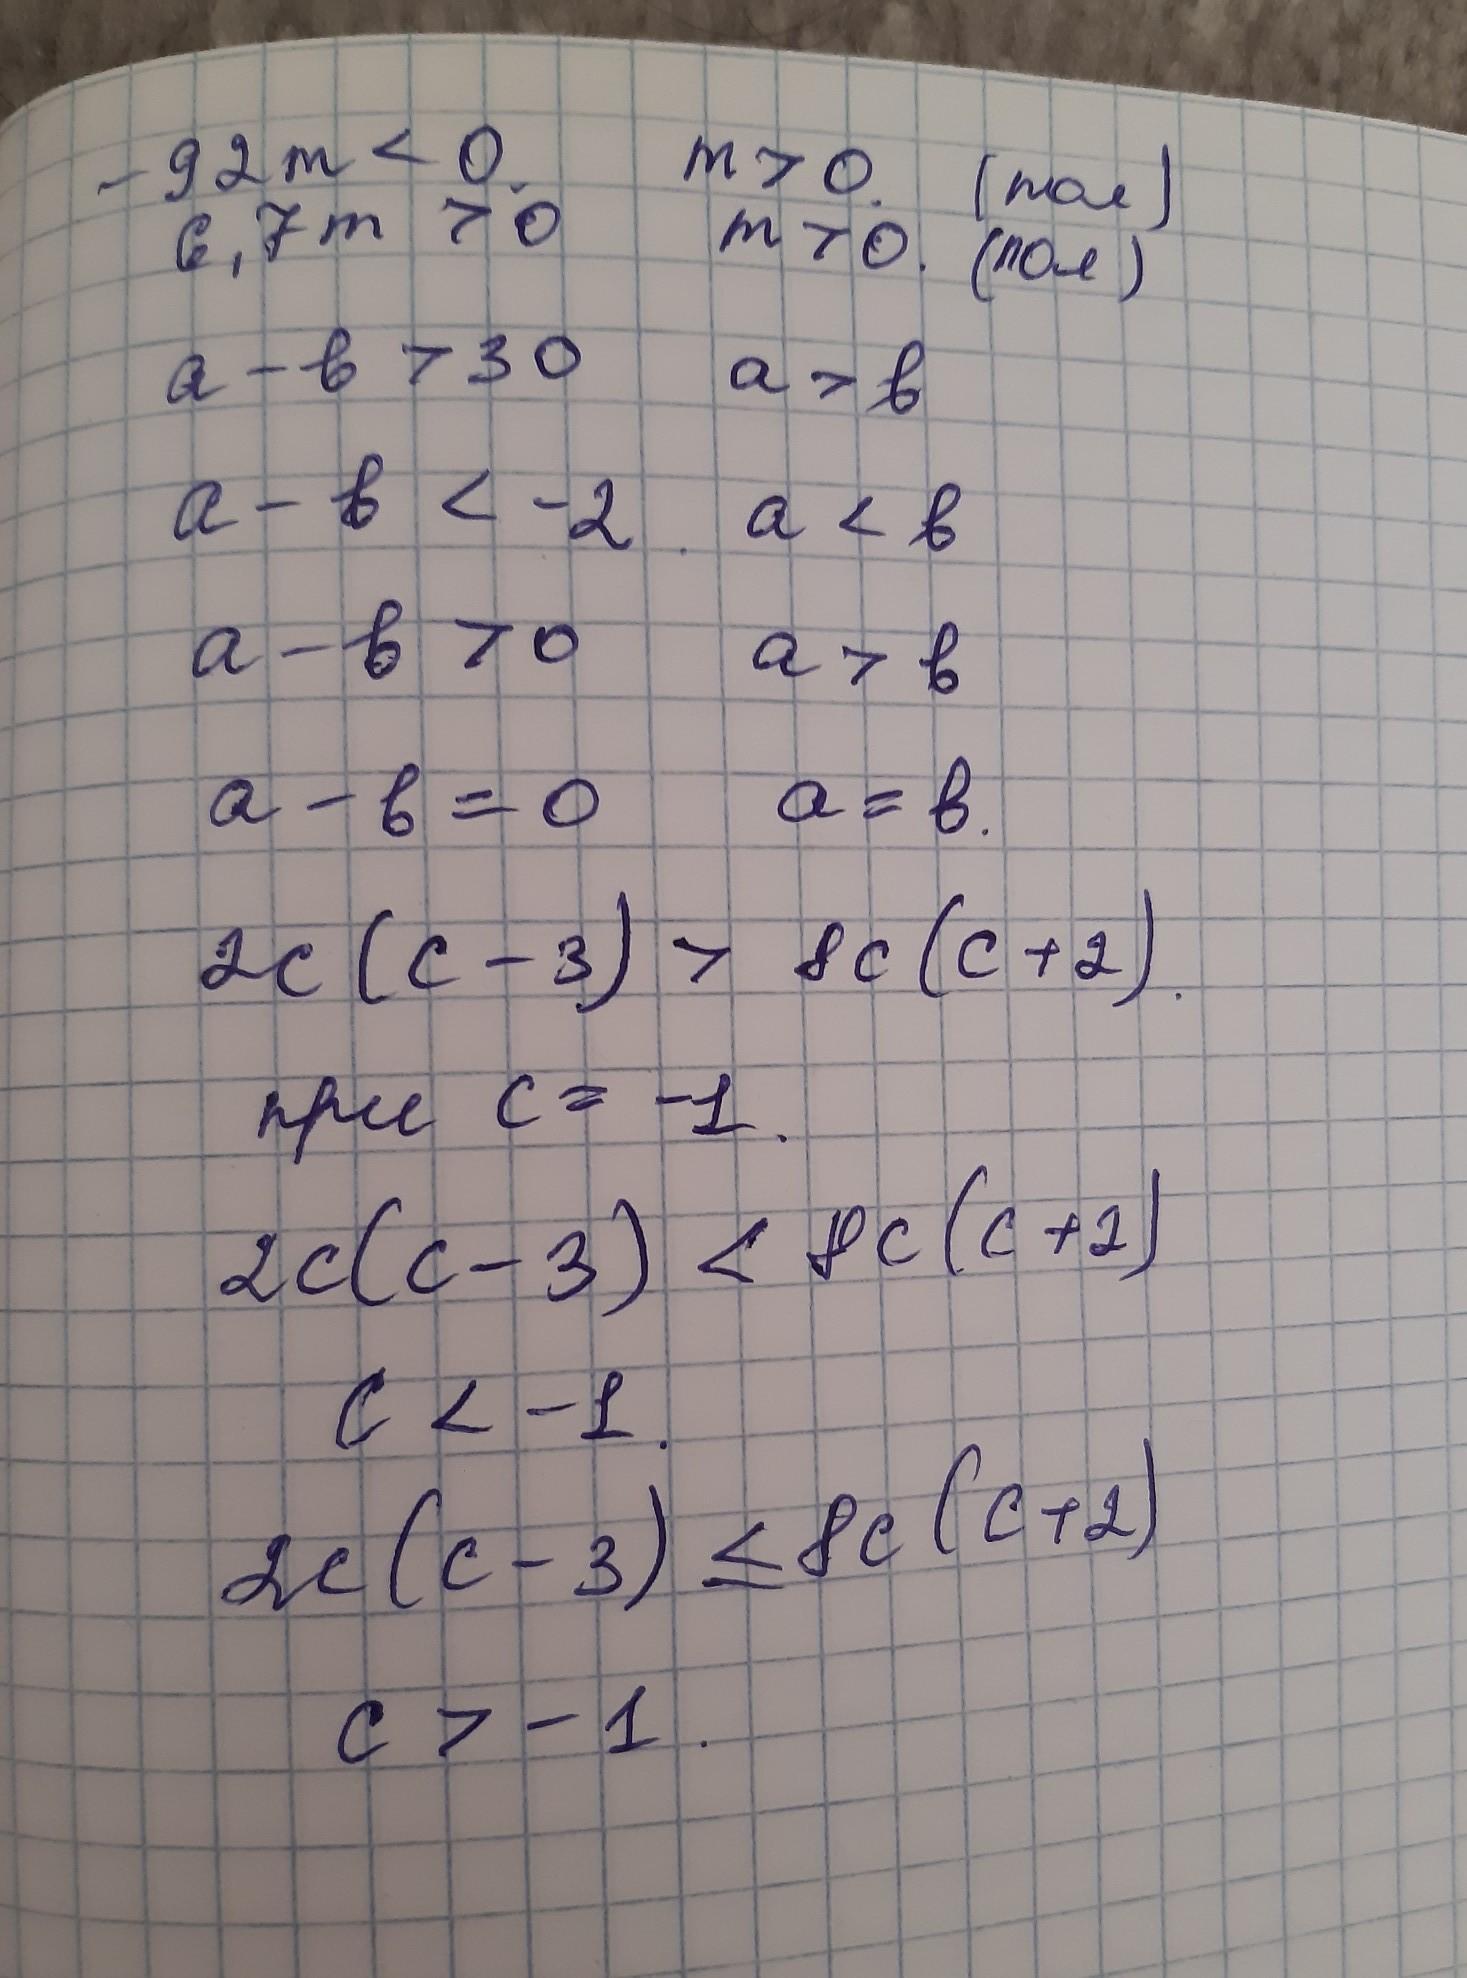 -92m < 0. m > 0. (пол)
6,7m > 0 m > 0. (пол)
a - b > 30 a > b
a - b < -2. a < b
a - b > 0 a > b
a - b = 0 a = b.
2c(c - 3) > 8c(c + 2).
при c = -1.
2c(c - 3) < 8c(c + 2)
c < -1.
2c(c - 3) ≤ 8c(c + 2)
c > -1.